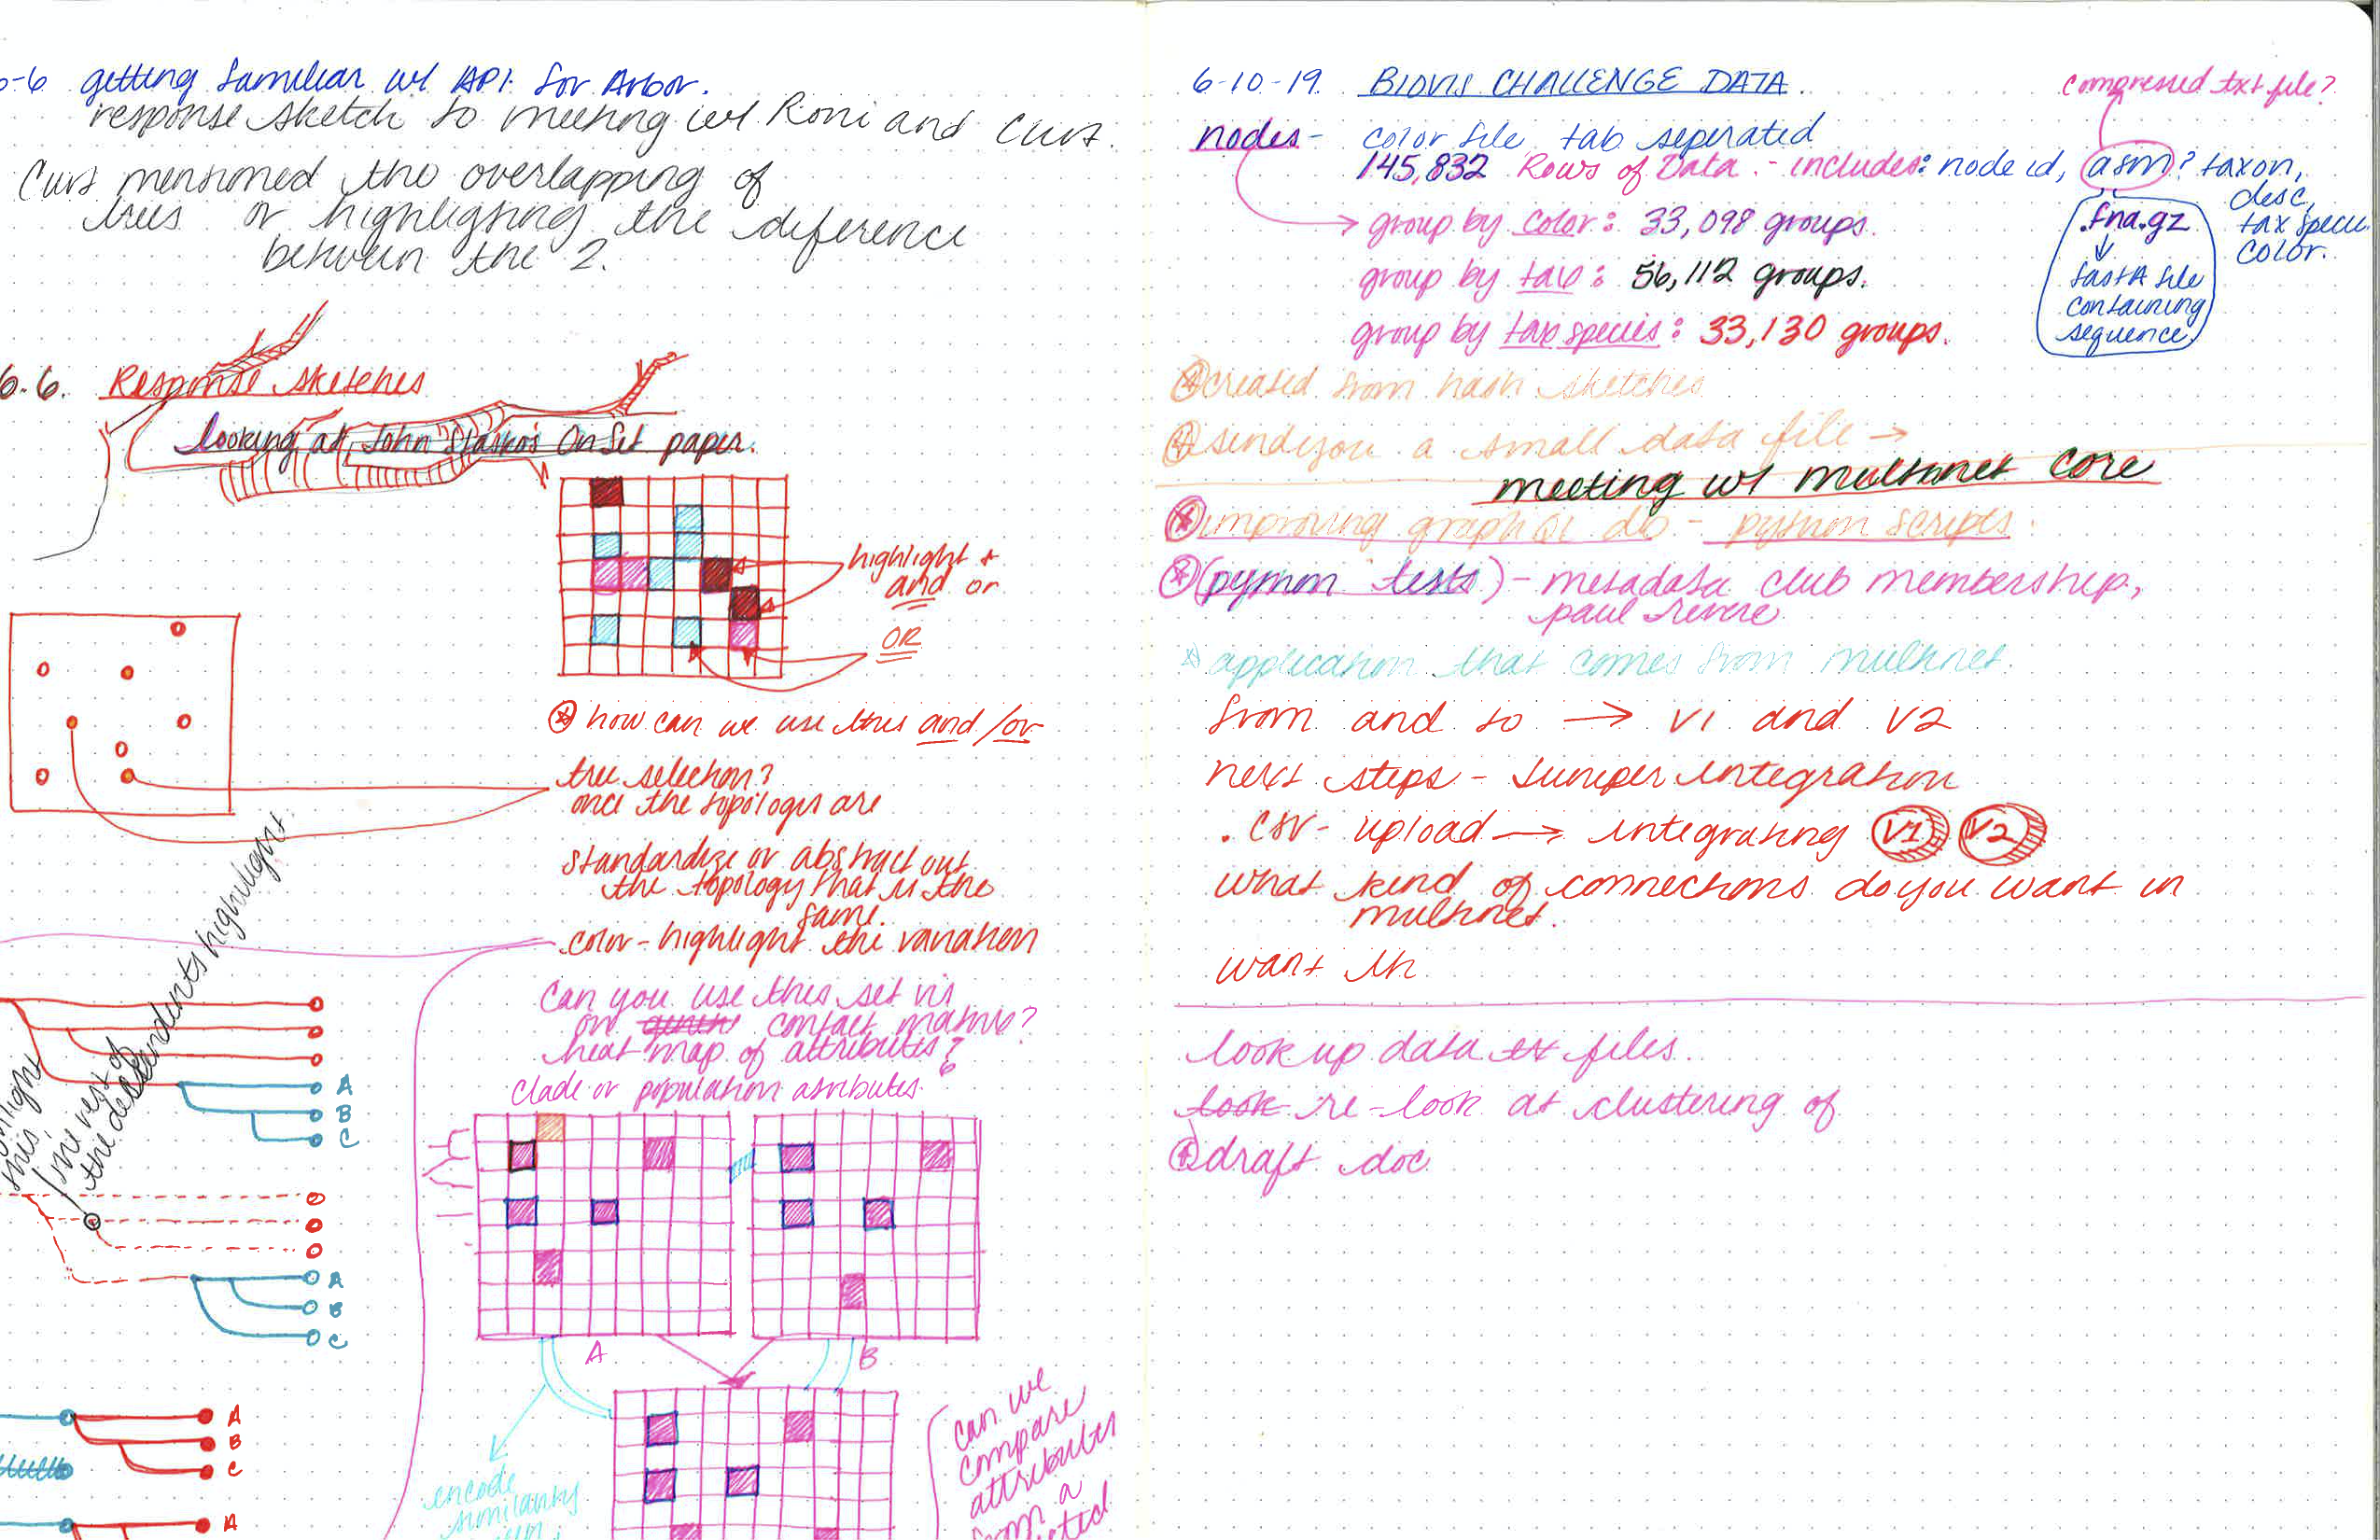 6-6 getting familiar w/ API for Arbor.
response sketch to meeting w/ Roni and Curt.
Curt mentioned the overlapping of
trees or highlighting the diference
between the 2.
6.6. Response sketches
looking at John Stasko's OnSet paper.
highlight +
and or
OR
how can we use this and/or
tree selection?
once the topologies are
standardize or abstract out
the topology that is the
same.
color - highlight the variation
can you use this set vis
on contact matrix?
heat map of attributes?
clade or population attributes
highlight
this
the rest of
the descendents highlight
A
B
C
A
B
C
A
B
C
A
A
B
encode
similarity
can we
compare
attributes
from a
6-10-19. BIOVIS CHALLENGE DATA.
compressed txt file?
nodes - color file tab seperated
145,832 Rows of Data. - includes: node id, asm? taxon,
desc,
tax specie
color.
.fna.gz
fastA file
containing
sequence
group by color: 33,098 groups.
group by tax: 56,112 groups.
group by tax species: 33,130 groups.
created from hash sketches
send you a small data file →
meeting w/ multinet core
improving graph QL db - python scripts.
(python tests) - metadata club membership,
paul revere
application that comes from multinet.
from and to → V1 and V2
next steps - Juniper integration
.csv - upload → integrating V1 V2
what kind of connections do you want in
multinet.
want th
look up data txt files.
look re-look at clustering of
draft doc